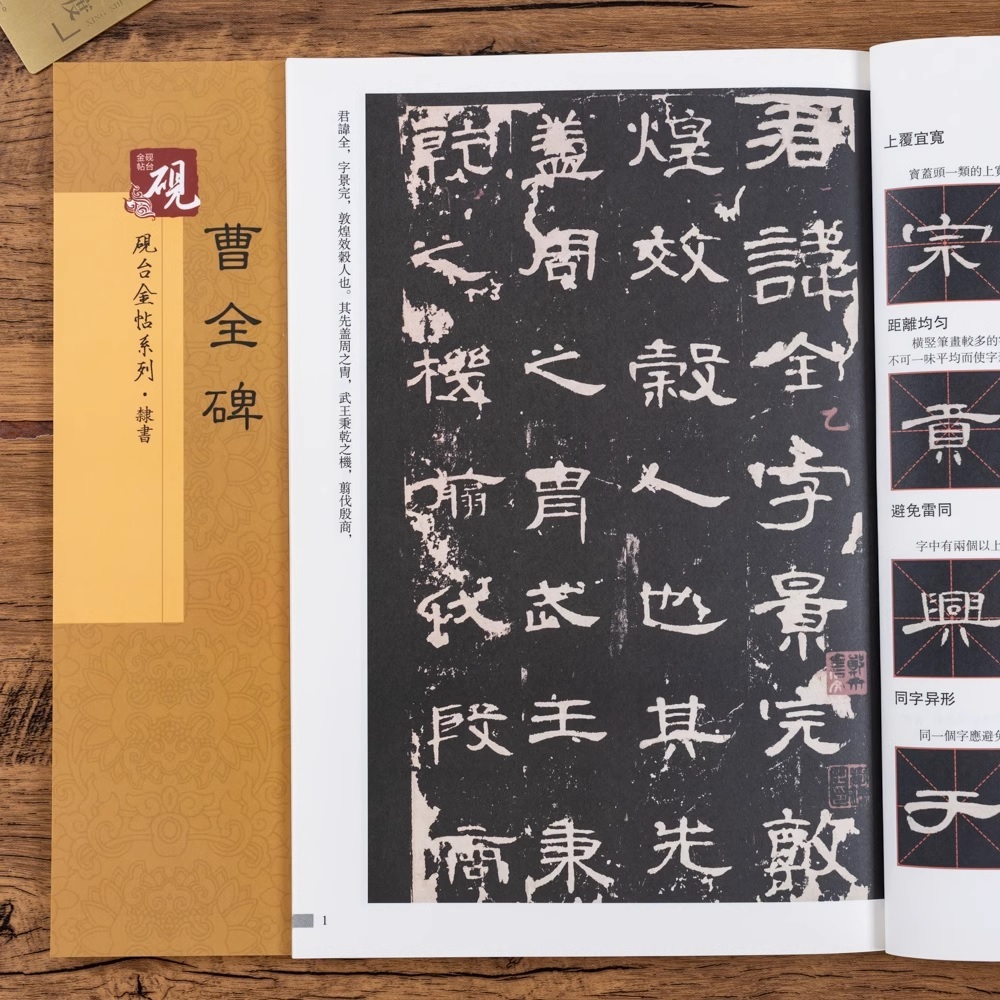 金硯
帖台
硯
硯台金帖系列·隸書
曹全碑
君諱全，字景完，敦煌效穀人也。其先蓋周之胄，武王秉乾之機，翦伐殷商，
君諱全字景完敦
煌效穀人也其先
蓋周之胄武王秉
乾之機翦伐殷商
1
上覆宜寬
寶蓋頭一類的上寬
宗
距離均勻
橫竪筆畫較多的
不可一味平均而使字
貢
避免雷同
字中有兩個以上
興
同字异形
同一個字應避免
于